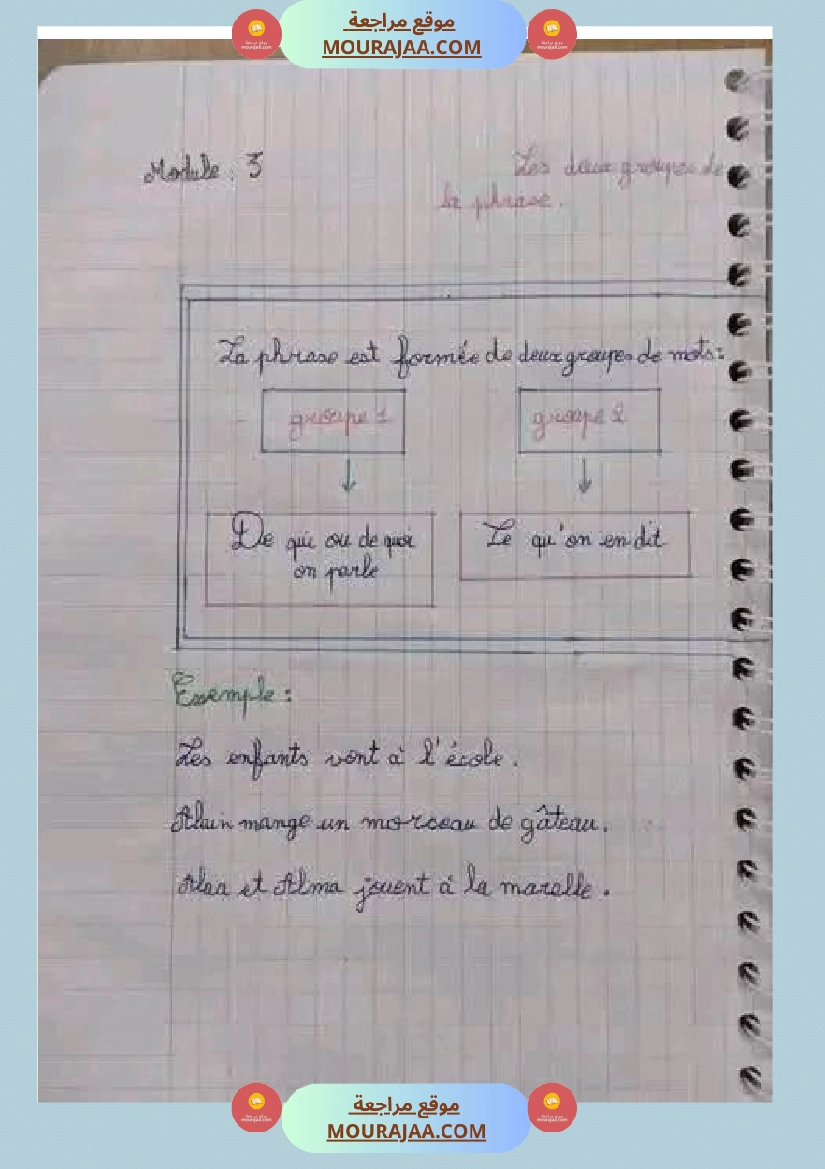 موقع مراجعة
MOURAJAA.COM
Module : 3
Les deux groupes de
la phrase.
La phrase est formée de deux groupes de mots:
groupe 1
groupe 2
De qui ou de quoi
on parle
Ce qu'on en dit
Exemple :
Les enfants vont à l'école.
Alain mange un morceau de gâteau.
et Alma jouent à la marelle.
موقع مراجعة
MOURAJAA.COM